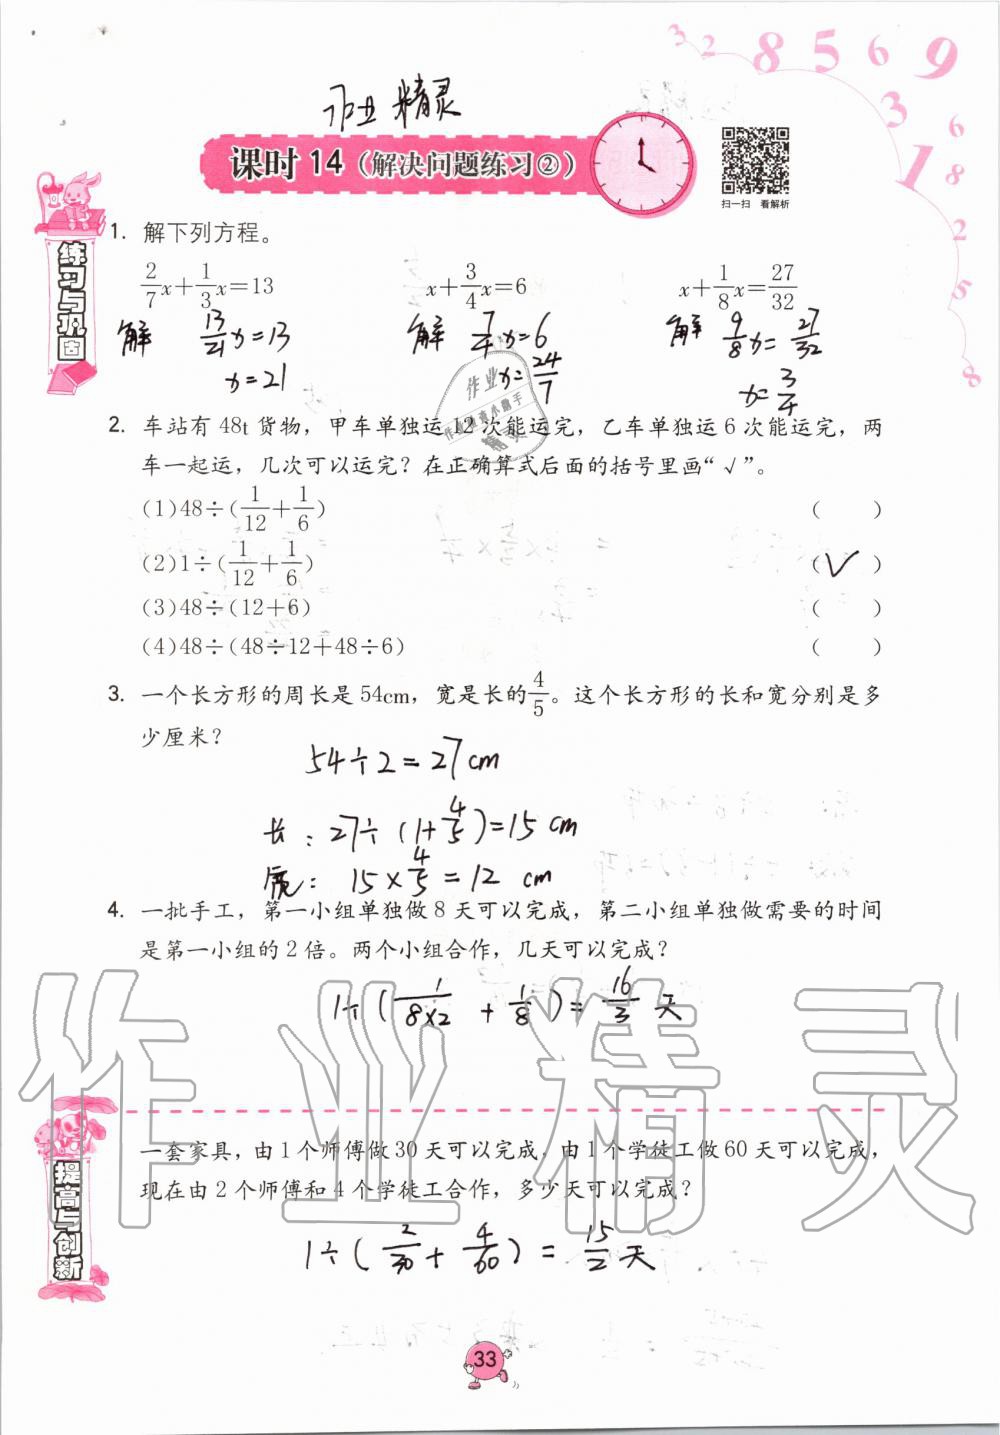 3 2 8 5 6 9
3
6
1 8
2
5
8
作业精灵
课时14(解决问题练习②)
扫一扫 看解析
练习与巩固
1. 解下列方程。
2/7x+1/3x=13 x+3/4x=6 x+1/8x=27/32
解 13/21x=13 解 7/4x=6 解 9/8x=27/32
x=21 x=24/7 x=3/4
作业
精灵
2. 车站有48t货物，甲车单独运12次能运完，乙车单独运6次能运完，两
车一起运，几次可以运完？在正确算式后面的括号里画“√”。
(1)48÷(1/12+1/6) ( )
(2)1÷(1/12+1/6) (√)
(3)48÷(12+6) ( )
(4)48÷(48÷12+48÷6) ( )
3. 一个长方形的周长是54cm，宽是长的4/5。这个长方形的长和宽分别是多
少厘米？
54÷2=27cm
长：27÷(1+4/5)=15cm
宽：15×4/5=12 cm
4. 一批手工，第一小组单独做8天可以完成，第二小组单独做需要的时间
是第一小组的2倍。两个小组合作，几天可以完成？
1÷(1/8×2+1/8)=16/3天
作业精灵
提高与创新
一套家具，由1个师傅做30天可以完成，由1个学徒工做60天可以完成，
现在由2个师傅和4个学徒工合作，多少天可以完成？
1÷(2/30+4/60)=15/2天
33